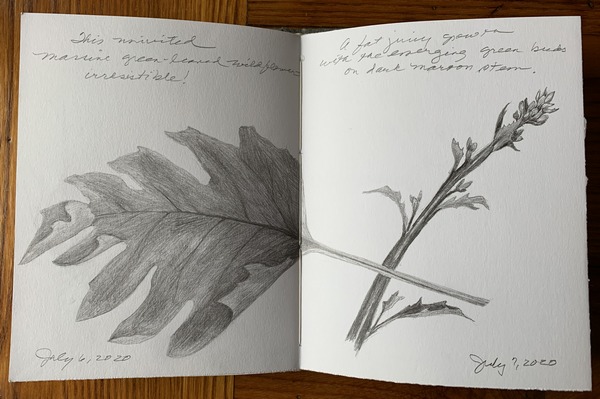 This uninvited
massive green-leaved wildflower
irresistible!
July 6, 2020
A fat juicy
with the emerging green buds
on dark maroon stem.
July 7, 2020